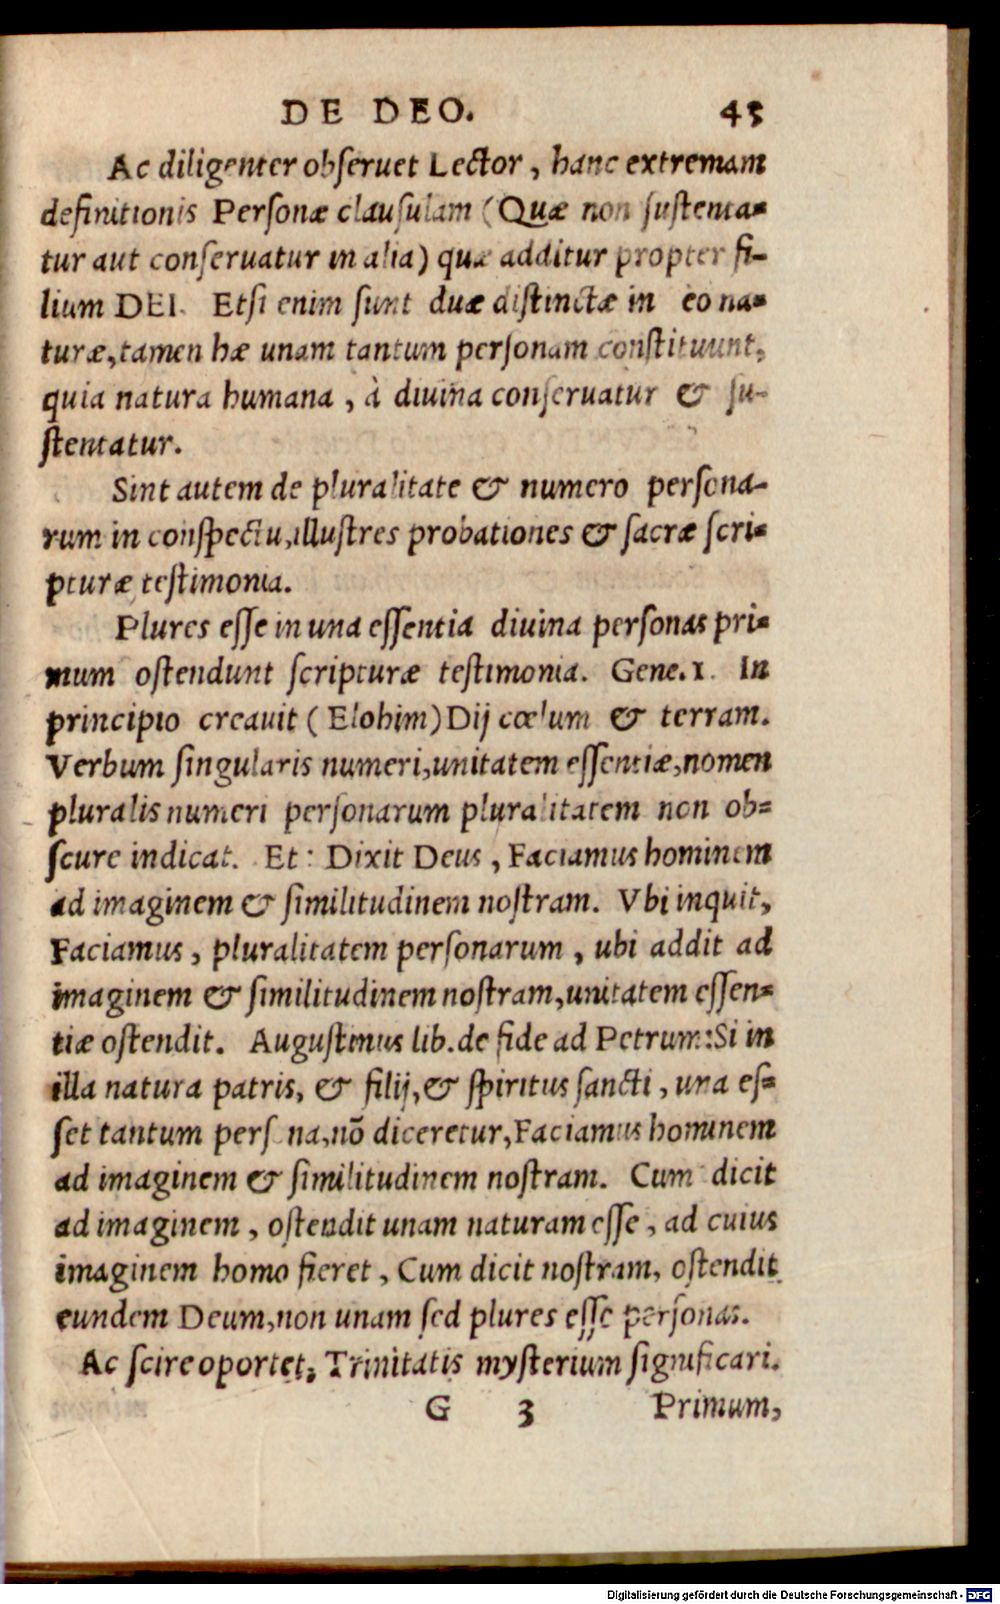 DE DEO. 45
Ac diligenter obſeruet Lector, hanc extremam
definitionis Perſonæ clauſulam (Quæ non ſuſtenta=
tur aut conſeruatur in alia) quæ additur propter fi-
lium DEI. Etſi enim ſunt duæ diſtinctæ in eo na=
turæ, tamen hæ unam tantum perſonam conſtituunt,
quia natura humana, à diuina conſeruatur & ſu-
ſtentatur.
Sint autem de pluralitate & numero perſona-
rum in conſpectu, illuſtres probationes & ſacræ ſcri=
pturæ teſtimonia.
Plures eſſe in una eſſentia diuina perſonas pri=
mum oſtendunt ſcripturæ teſtimonia. Gene. 1. In
principio creauit (Elohim) Dij cœlum & terram.
Verbum ſingularis numeri, unitatem eſſentiæ, nomen
pluralis numeri perſonarum pluralitatem non ob=
ſcure indicat. Et: Dixit Deus, Faciamus hominem
ad imaginem & ſimilitudinem noſtram. Vbi inquit,
Faciamus, pluralitatem perſonarum, ubi addit ad
imaginem & ſimilitudinem noſtram, unitatem eſſen=
tiæ oſtendit. Auguſtinus lib. de fide ad Petrum: Si in
illa natura patris, & filij, & ſpiritus ſancti, una eſ=
ſet tantum perſ na, nō diceretur, Faciamus hominem
ad imaginem & ſimilitudinem noſtram. Cum dicit
ad imaginem, oſtendit unam naturam eſſe, ad cuius
imaginem homo fieret, Cum dicit noſtram, oſtendit
eundem Deum, non unam ſed plures eſſe perſonas.
Ac ſcire oportet, Trinitatis myſterium ſignificari.
G 3 Primum,
Digitalisierung gefördert durch die Deutsche Forschungsgemeinschaft - DFG